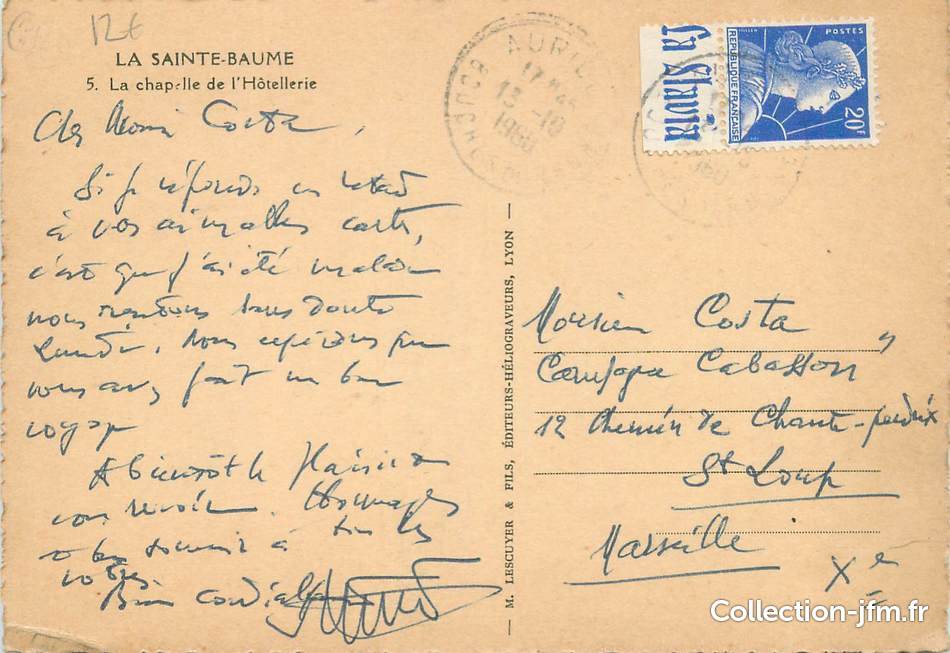 12€
LA SAINTE-BAUME
5. La chapelle de l'Hôtellerie
Cher Monsieur Costa,
Si je réponds en retard
à vos aimables cartes,
c'est que j'ai été malade
nous rentrons sans doute
Lundi. Nous espérons que
vous avez fait un bon
voyage
A bientôt le plaisir de
vous revoir. Hommages
souvenir à tous les
votres
Bien cordialement
M. LESCUYER & FILS, ÉDITEURS-HÉLIOGRAVEURS, LYON
AURIOL
13-10
1960
La Slavia
POSTES
REPUBLIQUE FRANÇAISE
20F
Monsieur Costa
Campagne Cabasson"
12 Chemin de Chante-perdrix
St Loup
Marseille
Xe
Collection-jfm.fr